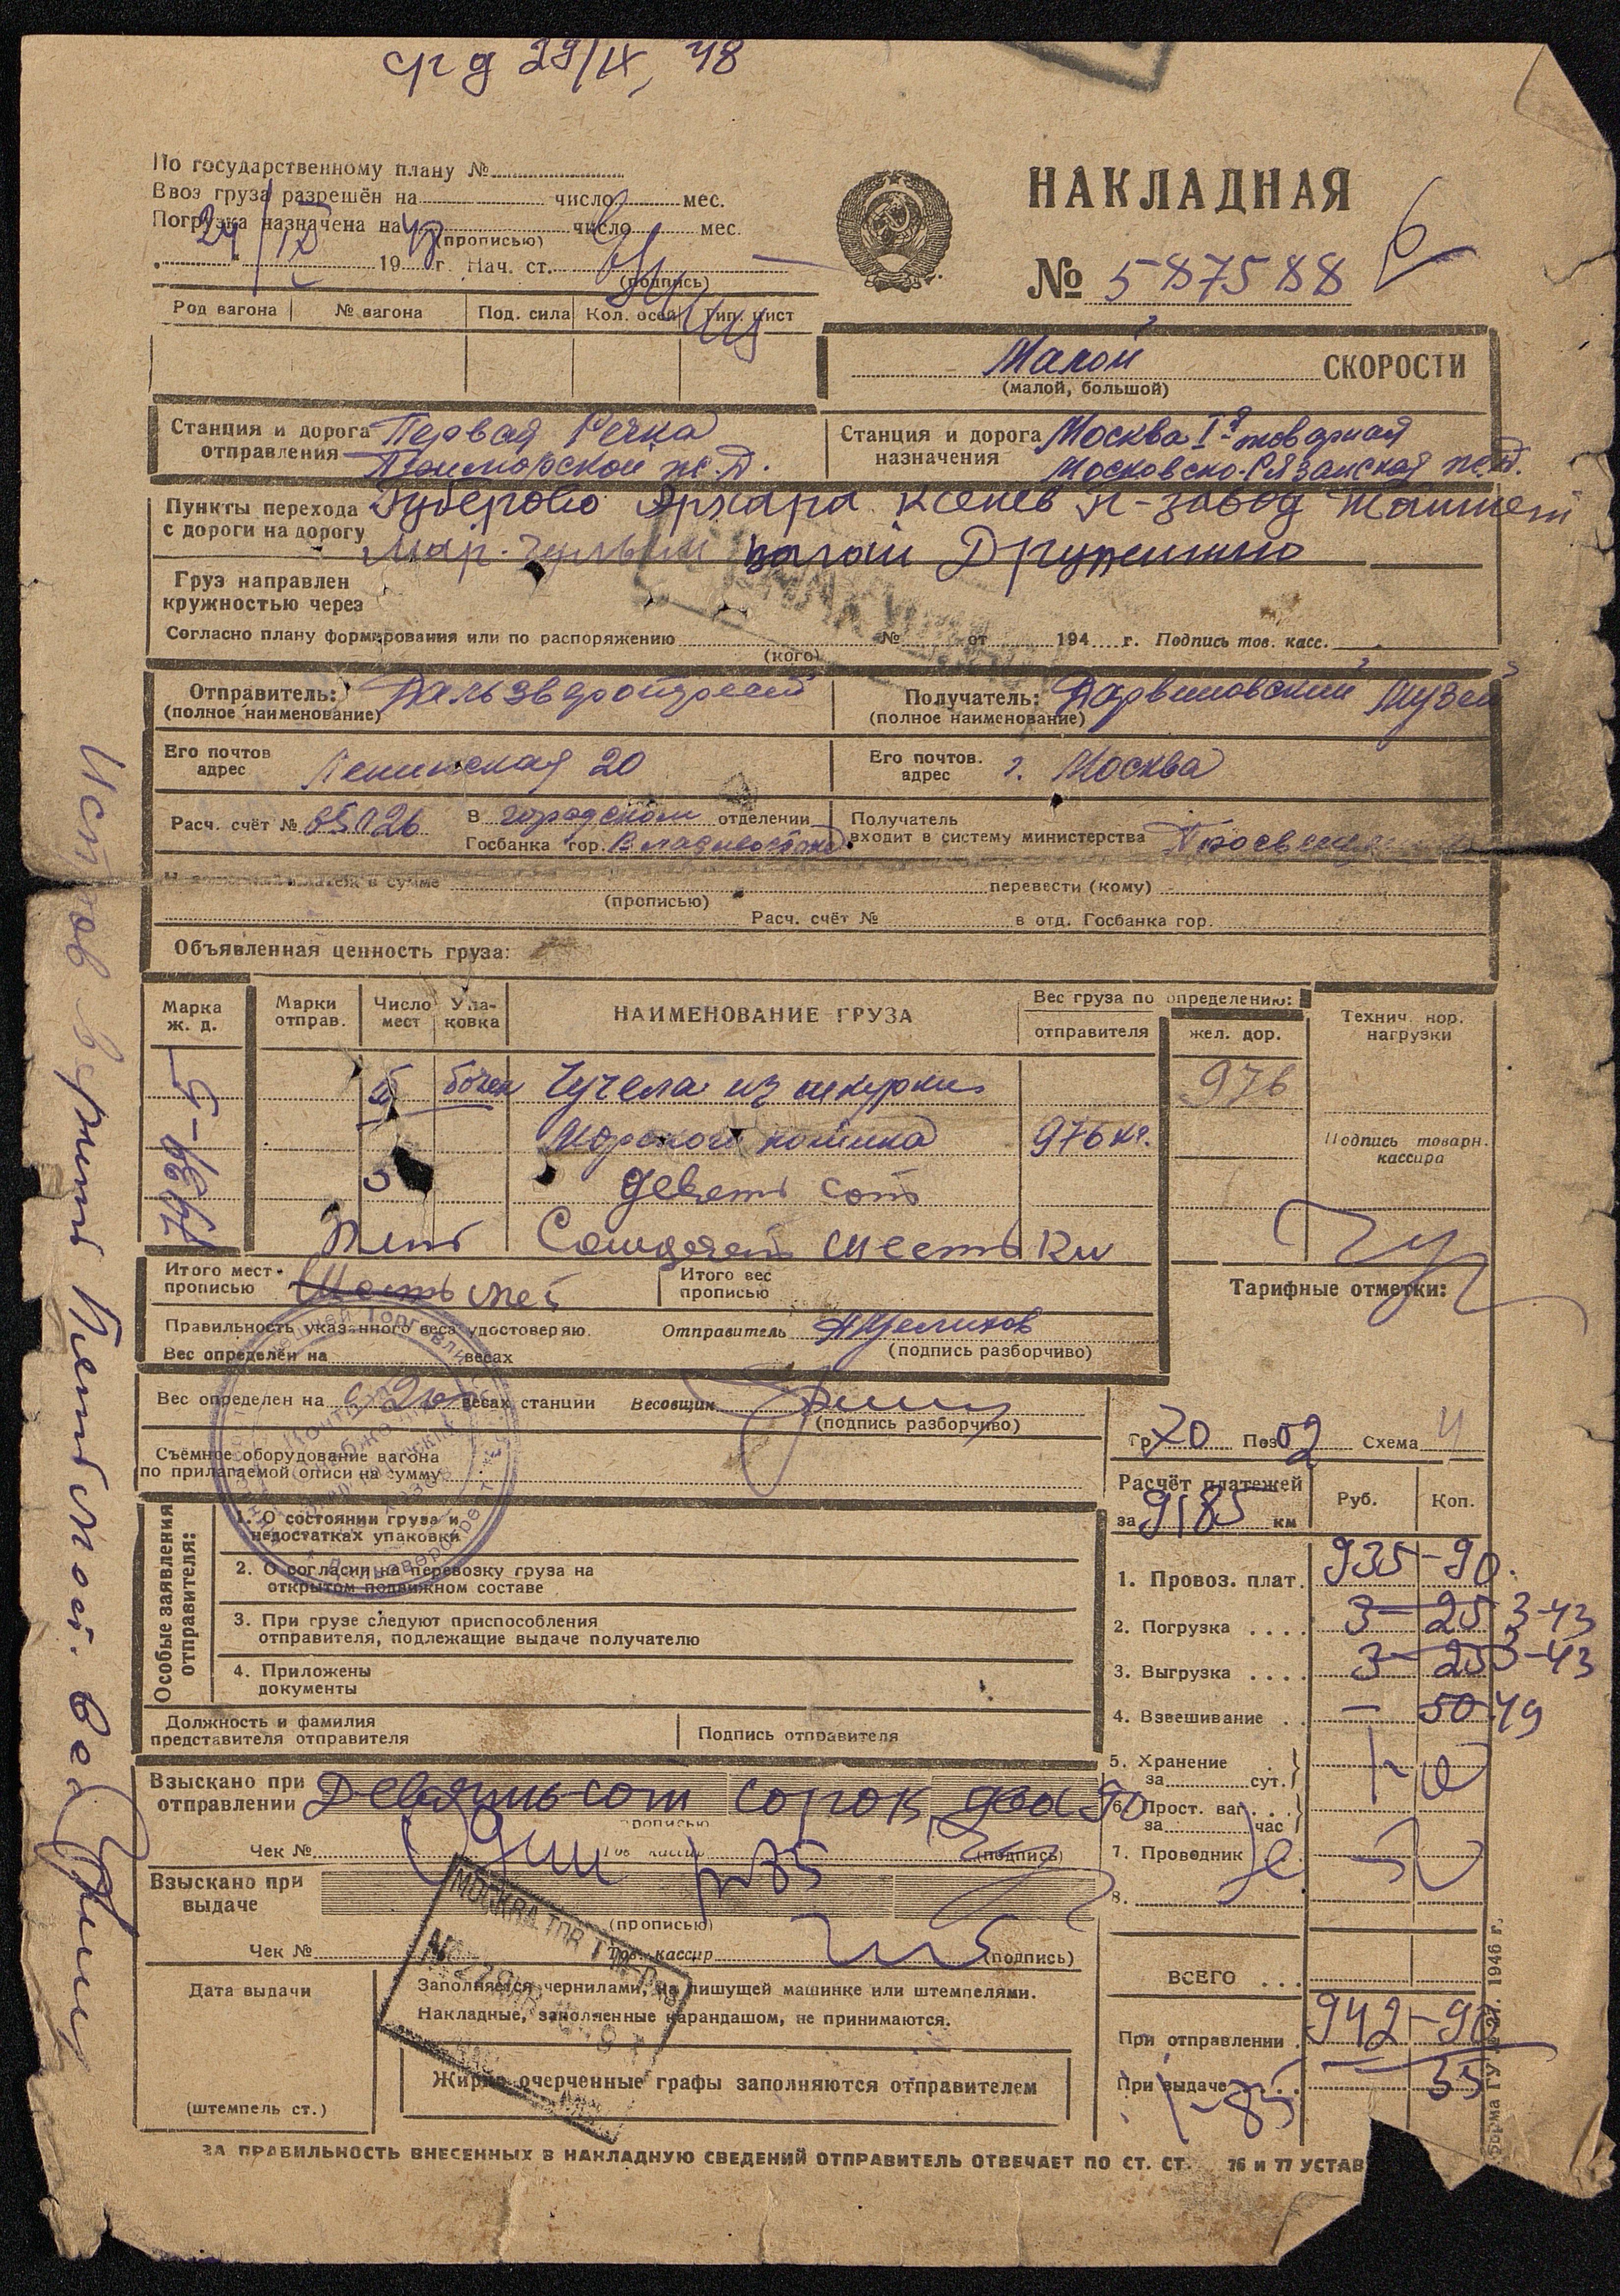 ср д 29/IX, 48
По государственному плану №
Ввоз груза разрешён на число мес.
Погрузка назначена на число мес.
(прописью)
24/IX 19 г. Нач. ст.
(подпись)
НАКЛАДНАЯ
№ 587588
Род вагона № вагона Под. сила Кол. осей Тип. цист
Малой СКОРОСТИ
(малой, большой)
Станция и дорога отправления Первая Речка
Приморской ж.д.
Станция и дорога назначения Москва I-я товарная
Московско-Рязанская ж.д.
Пункты перехода Губерово Архара Ксенев П-завод Тайшет
с дороги на дорогу Мар. Дружинино
Груз направлен
кружностью через
Согласно плану формирования или по распоряжению № от 194 г. Подпись тов. касс.
(кого)
Отправитель: Дальзверопромт
(полное наименование)
Получатель: Дарвиновский музей
(полное наименование)
Его почтов адрес Ленинская 20
Его почтов. адрес г. Москва
Расч. счёт № 65026 В городском отделении
Госбанка гор. Владивосток
Получатель
входит в систему министерства Просвещ
платеж в сумме перевести (кому)
(прописью)
Расч. счёт № в отд. Госбанка гор.
Объявленная ценность груза:
Марка ж. д.
Марки отправ.
Число мест
Упаковка
НАИМЕНОВАНИЕ ГРУЗА
Вес груза по определению:
отправителя
жел. дор.
Технич. нор. нагрузки
бочек Чучела из шкурки 976
Морского котика 976 кг.
5 Девять сот
Пять Семдесят шесть кг
Подпись товарн. кассира
Итого мест прописью Шесть мес
Итого вес прописью
Тарифные отметки:
Правильность указанного веса удостоверяю. Отправитель
Вес определён на весах (подпись разборчиво)
Вес определен на весах станции Весовщик
(подпись разборчиво)
Съёмное оборудование вагона
по прилагаемой описи на сумму
Гр. 70 Поз 02 Схема 4
Расчёт платежей
за 9185 км
Руб. Коп.
Особые заявления отправителя:
1. О состоянии груза и
недостатках упаковки
2. О согласии на перевозку груза на
открытом подвижном составе
3. При грузе следуют приспособления
отправителя, подлежащие выдаче получателю
4. Приложены
документы
Должность и фамилия
представителя отправителя
Подпись отправителя
1. Провоз. плат. 935-90
2. Погрузка 3-25 3-43
3. Выгрузка 3-25 3-43
4. Взвешивание - 50 49
5. Хранение
за сут.
6. Прост. ваг.
за час
7. Проводник
8.
Взыскано при
отправлении Девятьсот сорок два 90
прописью
Чек № (подпись)
Взыскано при
выдаче
(прописью)
Чек № Тов. кассир (подпись)
ВСЕГО
При отправлении 942-90
При выдаче
Дата выдачи
(штемпель ст.)
МОСКВА ТОВ
Заполняется чернилами, на пишущей машинке или штемпелями.
Накладные, заполненные карандашом, не принимаются.
Жирно очерченные графы заполняются отправителем
Форма ГУ 1946 г.
ЗА ПРАВИЛЬНОСТЬ ВНЕСЕННЫХ В НАКЛАДНУЮ СВЕДЕНИЙ ОТПРАВИТЕЛЬ ОТВЕЧАЕТ ПО СТ. СТ. 76 и 77 УСТАВ